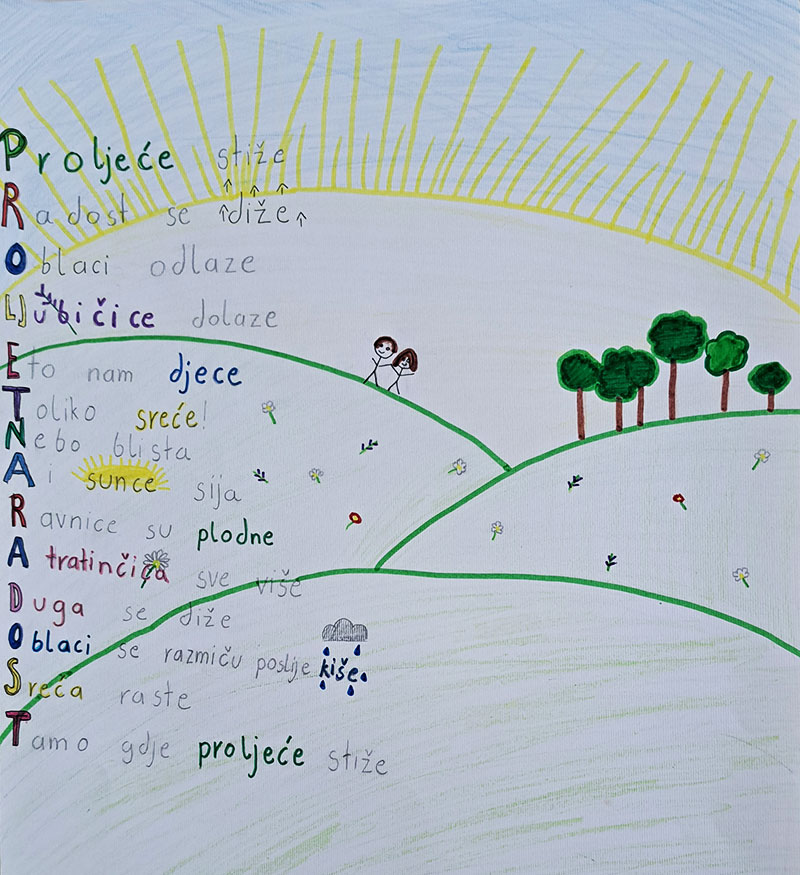 Proljeće stiže
Radost se diže
Oblaci odlaze
Ljubičice dolaze
Eto nam djece
Toliko sreće!
Nebo blista
Ai sunce sija
Ravnice su plodne
A tratinčica sve više
Duga se diže
Oblaci se razmiču poslije kiše
Sreća raste
Tamo gdje proljeće stiže